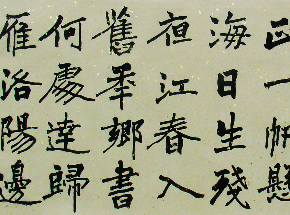 正一帆懸
海日生殘
夜江春入
舊年鄉書
何處達歸
雁洛陽邊